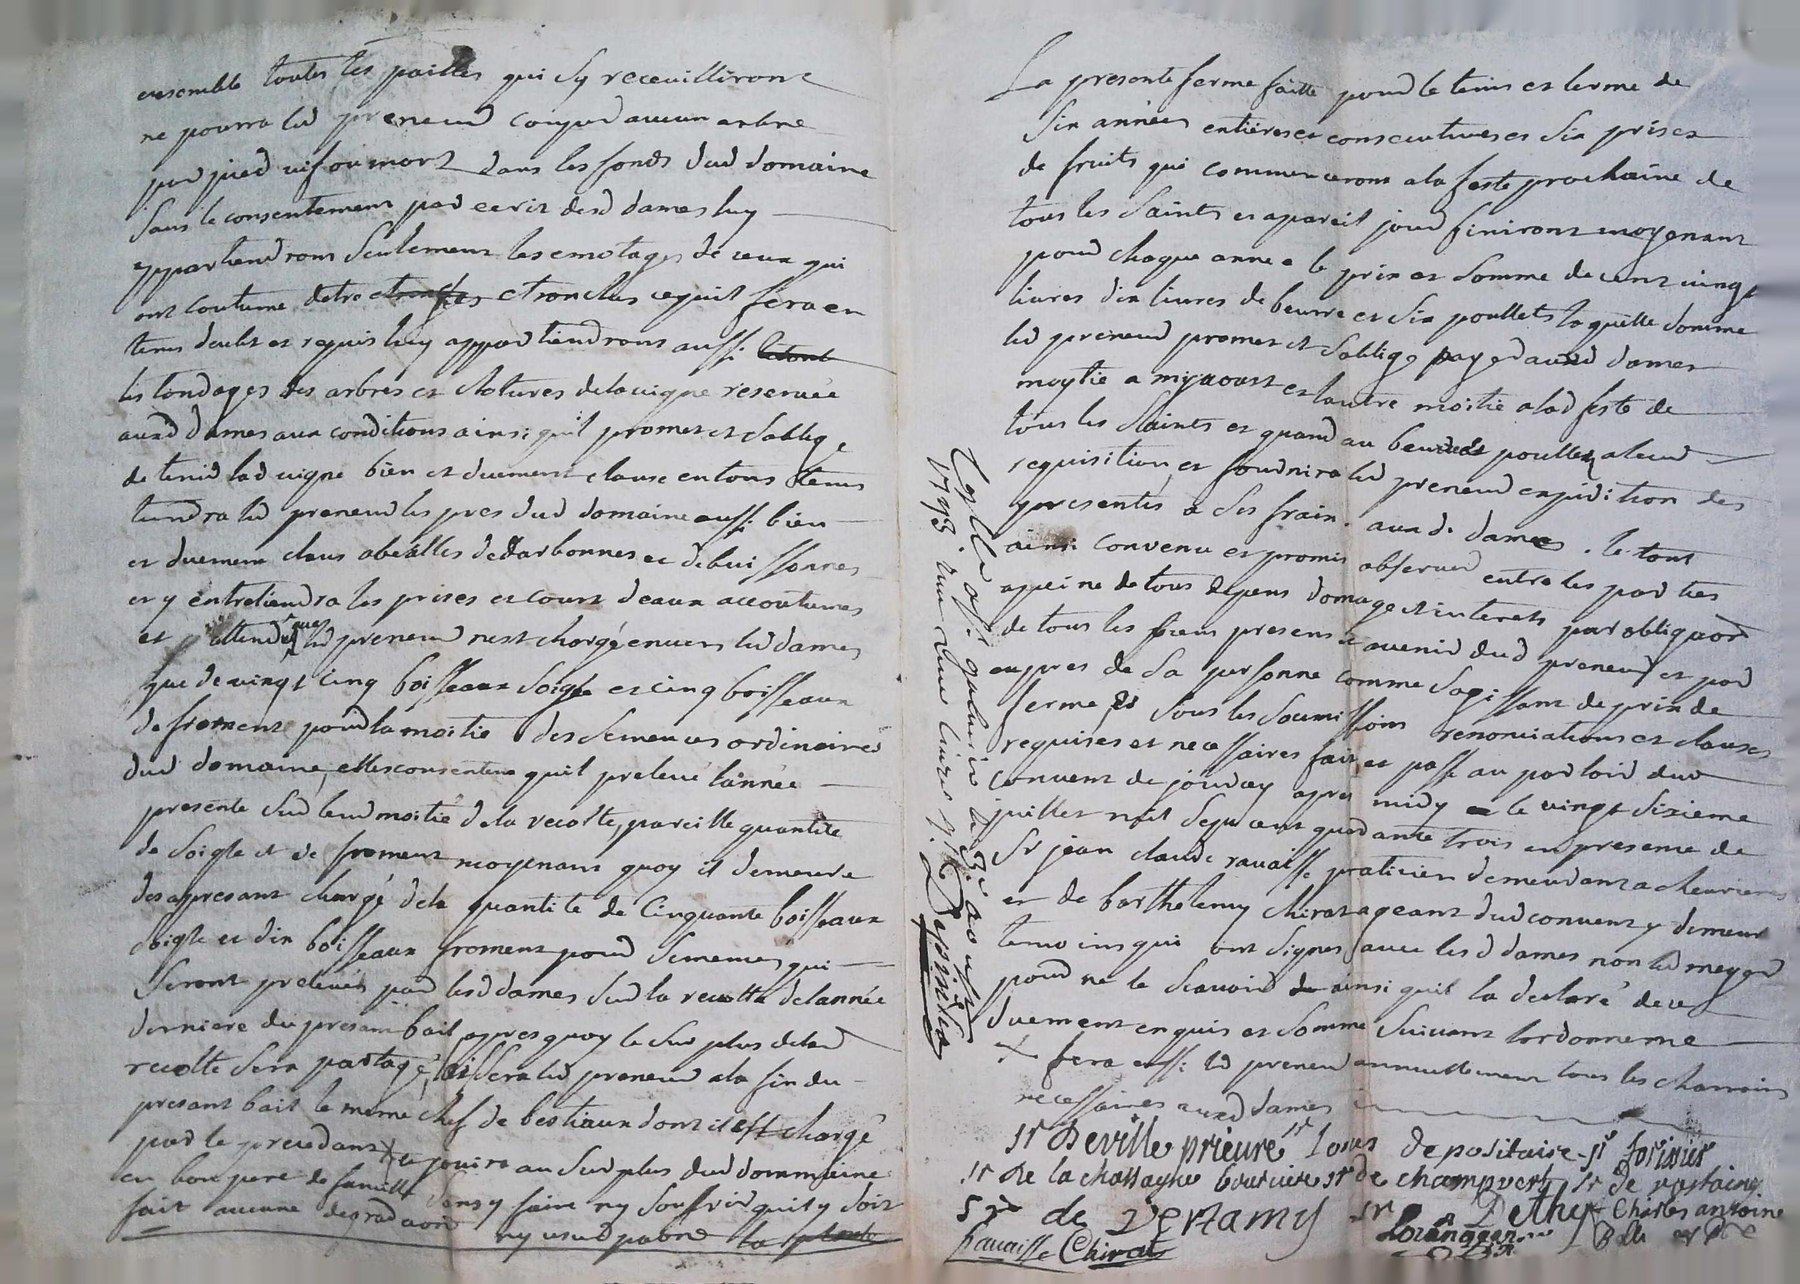 ensemble toutes les pailles qui sy receuilliront
ne pourra led preneur couper aucun arbre
par pied vif ou mort dans les fonds dud domaine
sans le consentement par ecrit desd dames luy
appartiendront seulement les emotages de ceux qui
ont coutume detre etronches cequil fera en
tems deubt et requis luy appartiendront aussi
les tondages des arbres et clotures delavigne reservée
auxd dames aux conditions ainsi quil promet et soblige
de tenir lad vigne bien et duement clause en tous tems
tiendra led preneur les pres dud domaine aussi bien
et duement claus
et y entretiendra les prises et cours deaux accoutumés
et attendu que led preneur nest chargé envers lesd dames
que de vingt cinq boisseaux soigle et cinq boisseaux
de froment pour la moitié des semences ordinaires
dud domaine, elles consentent quil preleve lannée
presente sur leur moitié dela recolte, pareille quantité
de soigle et de froment moyenant quoy il demeure
des apresant chargé dela quantité de cinquante boisseaux
soigle et dix boisseaux froment pour semences qui
seront prelevés par lesd dames sur la recolte delannée
derniere du present bail apres quoy le surplus delad
recolte sera partagé, laissera led preneur ala fin du
presant bail le meme chef de bestiaux dont il est chargé
par le precedant et jouira au surplus dud dommaine
en bon pere de famille sans y faire ny souffrir quil y soit
fait aucune degradaon ny
La presente ferme faitte pour le tems et terme de
six années entières et consecutives et six prises
de fruits qui commenceront ala feste prochaine de
tous les Saints et apareil jour finiront moyenant
pour chaque année le prix et somme de cent vingt
livres dix livres de beurre et six poullets laquelle somme
led preneur promet et soblige payer auxd dames
moytié a myaoust et lautre moitié alad feste de
tous les Saints et quand au beurre et poullets aleur
requisition, et fournira led preneur expedition des
presentes a ses frais auxd. dames. le tout
ainsi convenu et promis observer entre les parties
apeine de tous depens domages et interets par obligaon
de tous les biens presens et avenir dud preneur et par
expres de sa personne comme sagissant de prix de
ferme sous les soumissions renonciations et clauses
requises et necessaires fait et passé au parloir dud
convent de jourcey apres midy le vingt sixieme
juillet mil sept cent quarante trois en presence de
Sr jean claude ravaisse praticien demeurant a chevrieres
et de barthelemy chirat ageant dud convent y demeur
temoins qui ont signes avec lesd dames non led
pour ne le scavoir ainsi quil la declaré de ce
duement enquis et sommé suivant lordonnense
fera aussi led preneur annuellement tous les charrois
necessaires auxd dames
sr Deville prieure sr depositaire sr forissier
sr De la chassagne boursiere sr de champvert sr de
sr de vertamy sr Charles antoine
Ravaisse Chirat